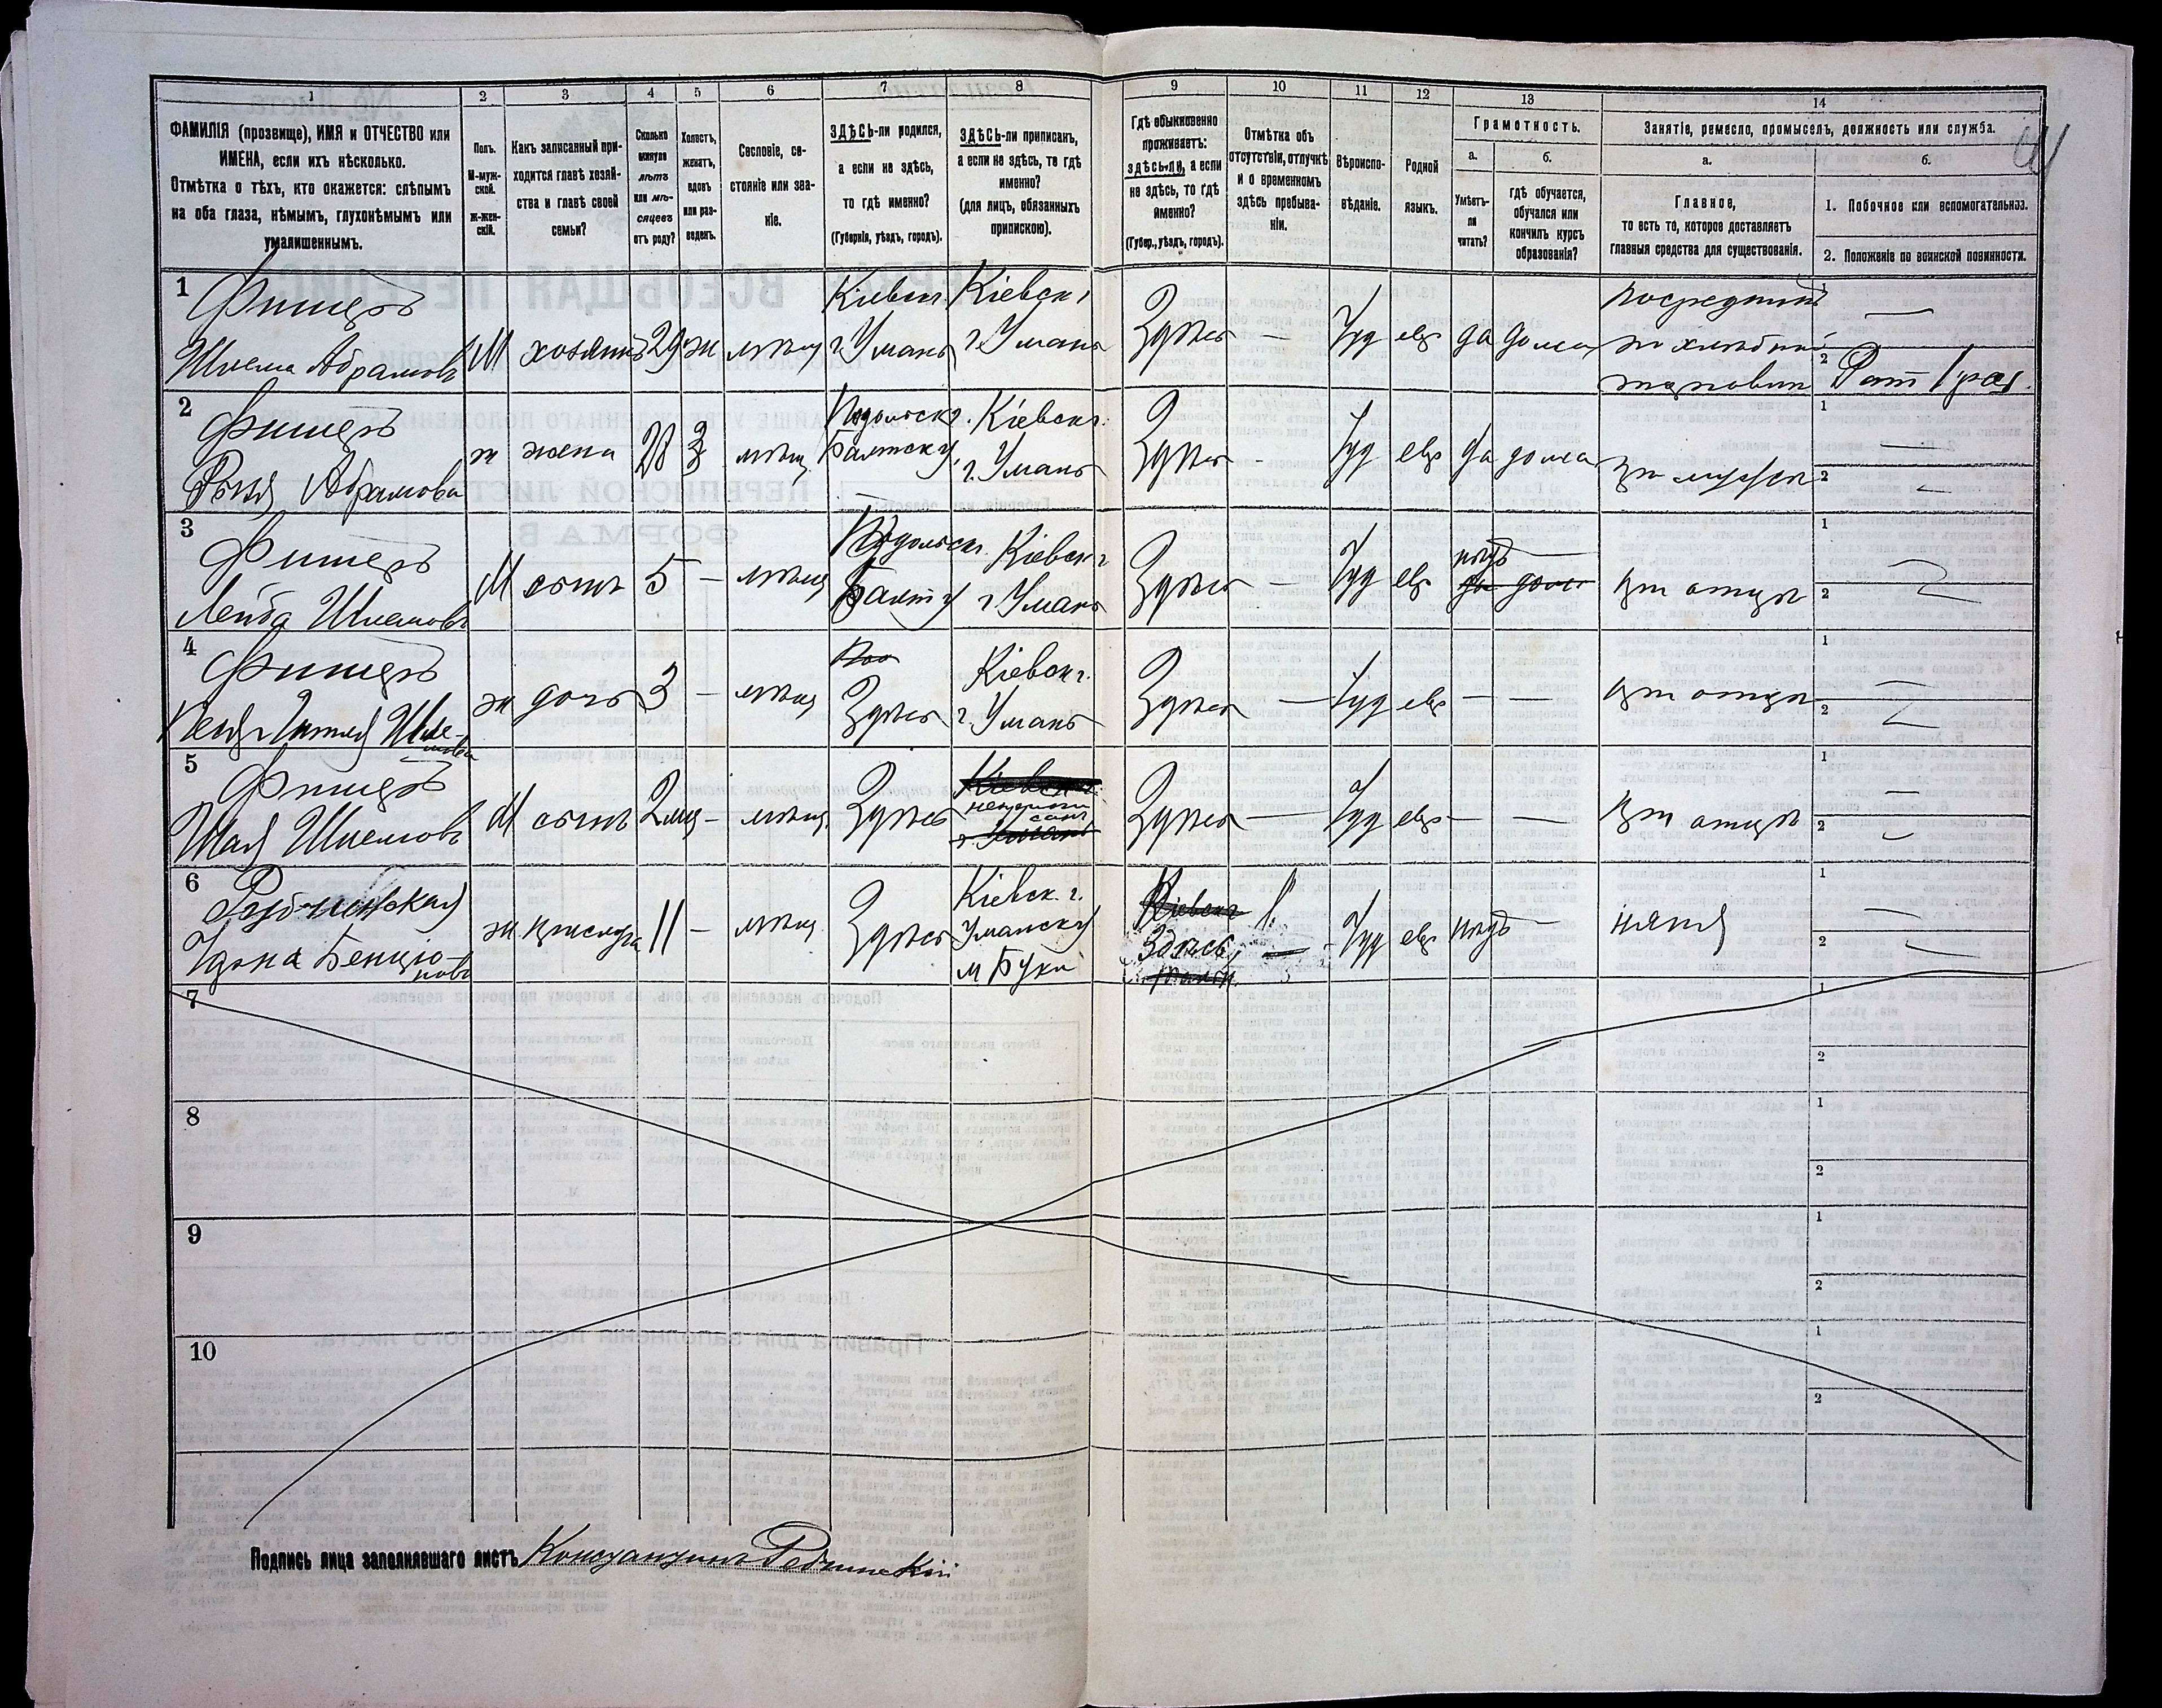 1 2 3 4 5 6 7 8 9 10 11 12 13 14
ФАМИЛІЯ (прозвище), ИМЯ и ОТЧЕСТВО или
ИМЕНА, если ихъ нѣсколько.
Отмѣтка о тѣхъ, кто окажется: слѣпымъ
на оба глаза, нѣмымъ, глухонѣмымъ или
умалишеннымъ.
Полъ.
М-муж-
ской.
ж-жен-
скій.
Какъ записанный при-
ходится главѣ хозяй-
ства и главѣ своей
семьи?
Сколько
минуло
лѣтъ
или мѣ-
сяцевъ
отъ роду?
Холостъ,
женатъ,
вдовъ
или раз-
веденъ.
Сословіе, со-
стояніе или зва-
ніе.
ЗДѢСЬ-ли родился,
а если не здѣсь,
то гдѣ именно?
(Губернія, уѣздъ, городъ).
ЗДѢСЬ-ли приписанъ,
а если не здѣсь, то гдѣ
именно?
(для лицъ, обязанныхъ
припискою).
Гдѣ обыкновенно
проживаетъ:
здѣсь-ли, а если
не здѣсь, то гдѣ
именно?
(Губер., уѣздъ, городъ).
Отмѣтка объ
отсутствіи, отлучкѣ
и о временномъ
здѣсь пребыва-
ніи.
Вѣроиспо-
вѣданіе.
Родной
языкъ.
Грамотность.
а.
Умѣетъ-
ли
читать?
б.
гдѣ обучается,
обучался или
кончилъ курсъ
образованія?
Занятіе, ремесло, промыселъ, должность или служба.
а.
Главное,
то есть то, которое доставляетъ
главныя средства для существованія.
б.
1. Побочное или вспомогательное.
2. Положеніе по воинской повинности.
1 Фишеръ Кіевск. Кіевск г
Шлема Абрамовъ М хозяинъ 29 ж мѣщ г Умань г. Умань Здѣсь — Іуд евр да дома
посредникъ
по хлѣбной
торговли
1 —
2 Рат 1 раз.
2 Фишеръ Подольск г. Кіевск г.
Абрамова ж жена 28 з мѣщ. Балтск у. г. Умань Здѣсь - Іуд евр да дома при мужѣ
1 —
2 —
3 Фишеръ Подольск г. Кіевск г
Лейба Шлемовъ М сынъ 5 — мѣщ Балт у г Умань Здѣсь — Іуд евр нѣтъ — да дома при отцѣ
1
2
4 Фишеръ Кіевск г.
ж дочь 3 — мѣщ Здѣсь г. Умань Здѣсь — Іуд евр — — при отцѣ
1
2
5 Фишеръ
Шая Шлемовъ М сынъ 2 мѣс — мѣщ. Здѣсь Кіевск г. г Умань Здѣсь — Іуд евр — — при отцѣ
1 —
2
6 Кіевск. г. Кіевск г
Бенціо-
нова ж прислуга 11 — мѣщ Здѣсь Уманск у
м Буки Здѣсь, — Іуд евр нѣтъ — няня
1 —
2 —
7 1
2
8 1
2
9 1
2
10 1
2
Подпись лица заполнявшаго листъ Константинъ